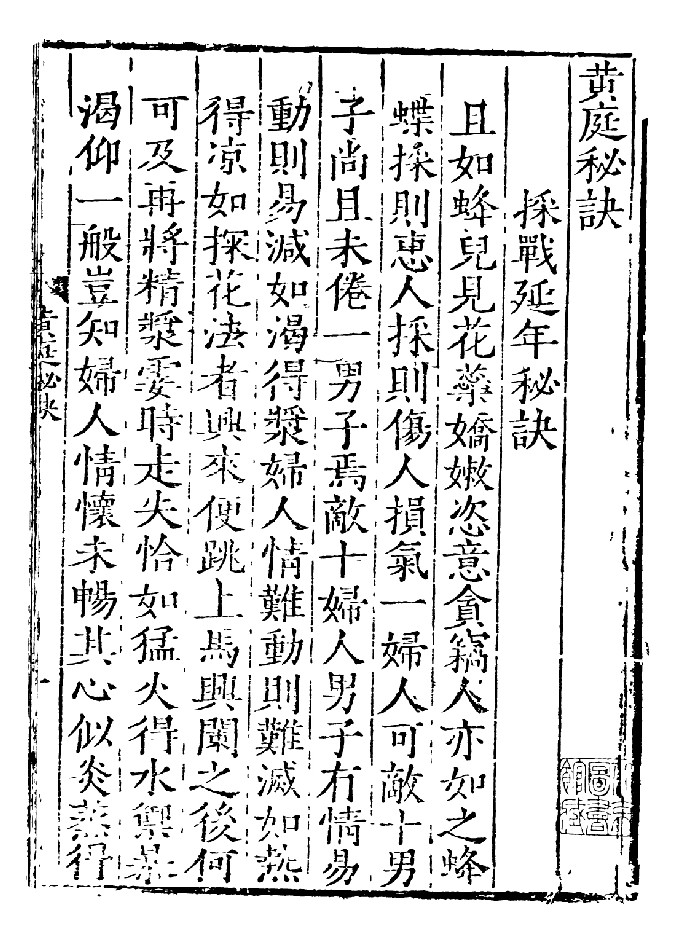 黄庭秘訣
採戰延年秘訣
且如蜂兒見花蘂嬌嫩恣意貪竊人亦如之蜂
蝶採則惠人採則傷人損氣一婦人可敵十男
子尚且未倦一男子焉敵十婦人男子有情易
動則易減如渴得漿婦人情難動則難滅如熱
得凉如探花法者興來便跳上馬興闌之後何
可及再將精漿霎時走失恰如猛火得水禦
渴仰一般豈知婦人情懷未暢其心似炎蒸得
黄庭秘訣
一
圖書